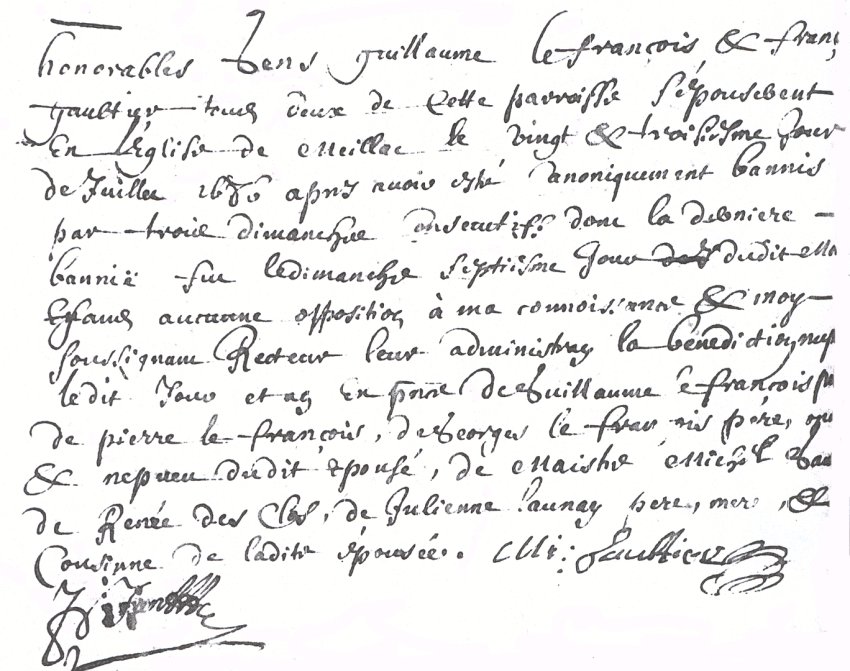 honorables Gens guillaume le françois & franç
gaultier tous deux de Cette parroisse s'épouserent
En l'Eglise de Meillac le vingt & troisiesme Jour
de Juillet 1686 apres avoir esté Canoniquement bannis
par trois dimanches consecutifs donc la derniere
bannie fut ledimanche septiesme Jour dudit Mo
Effans aucunne opposition à ma connoissance & moy
soussignant Recteur leur administray la bénédiction nup
ledit Jour et an En pñce de Guillaume le françois
de pierre le françois, de Georges le françois pére,
& nepveu dudit épousé, de Maistre Michel Gau
de Renée des Clos, de Julienne launay pere, mere, &
Cousinne de ladite épousée. M: Gaultier